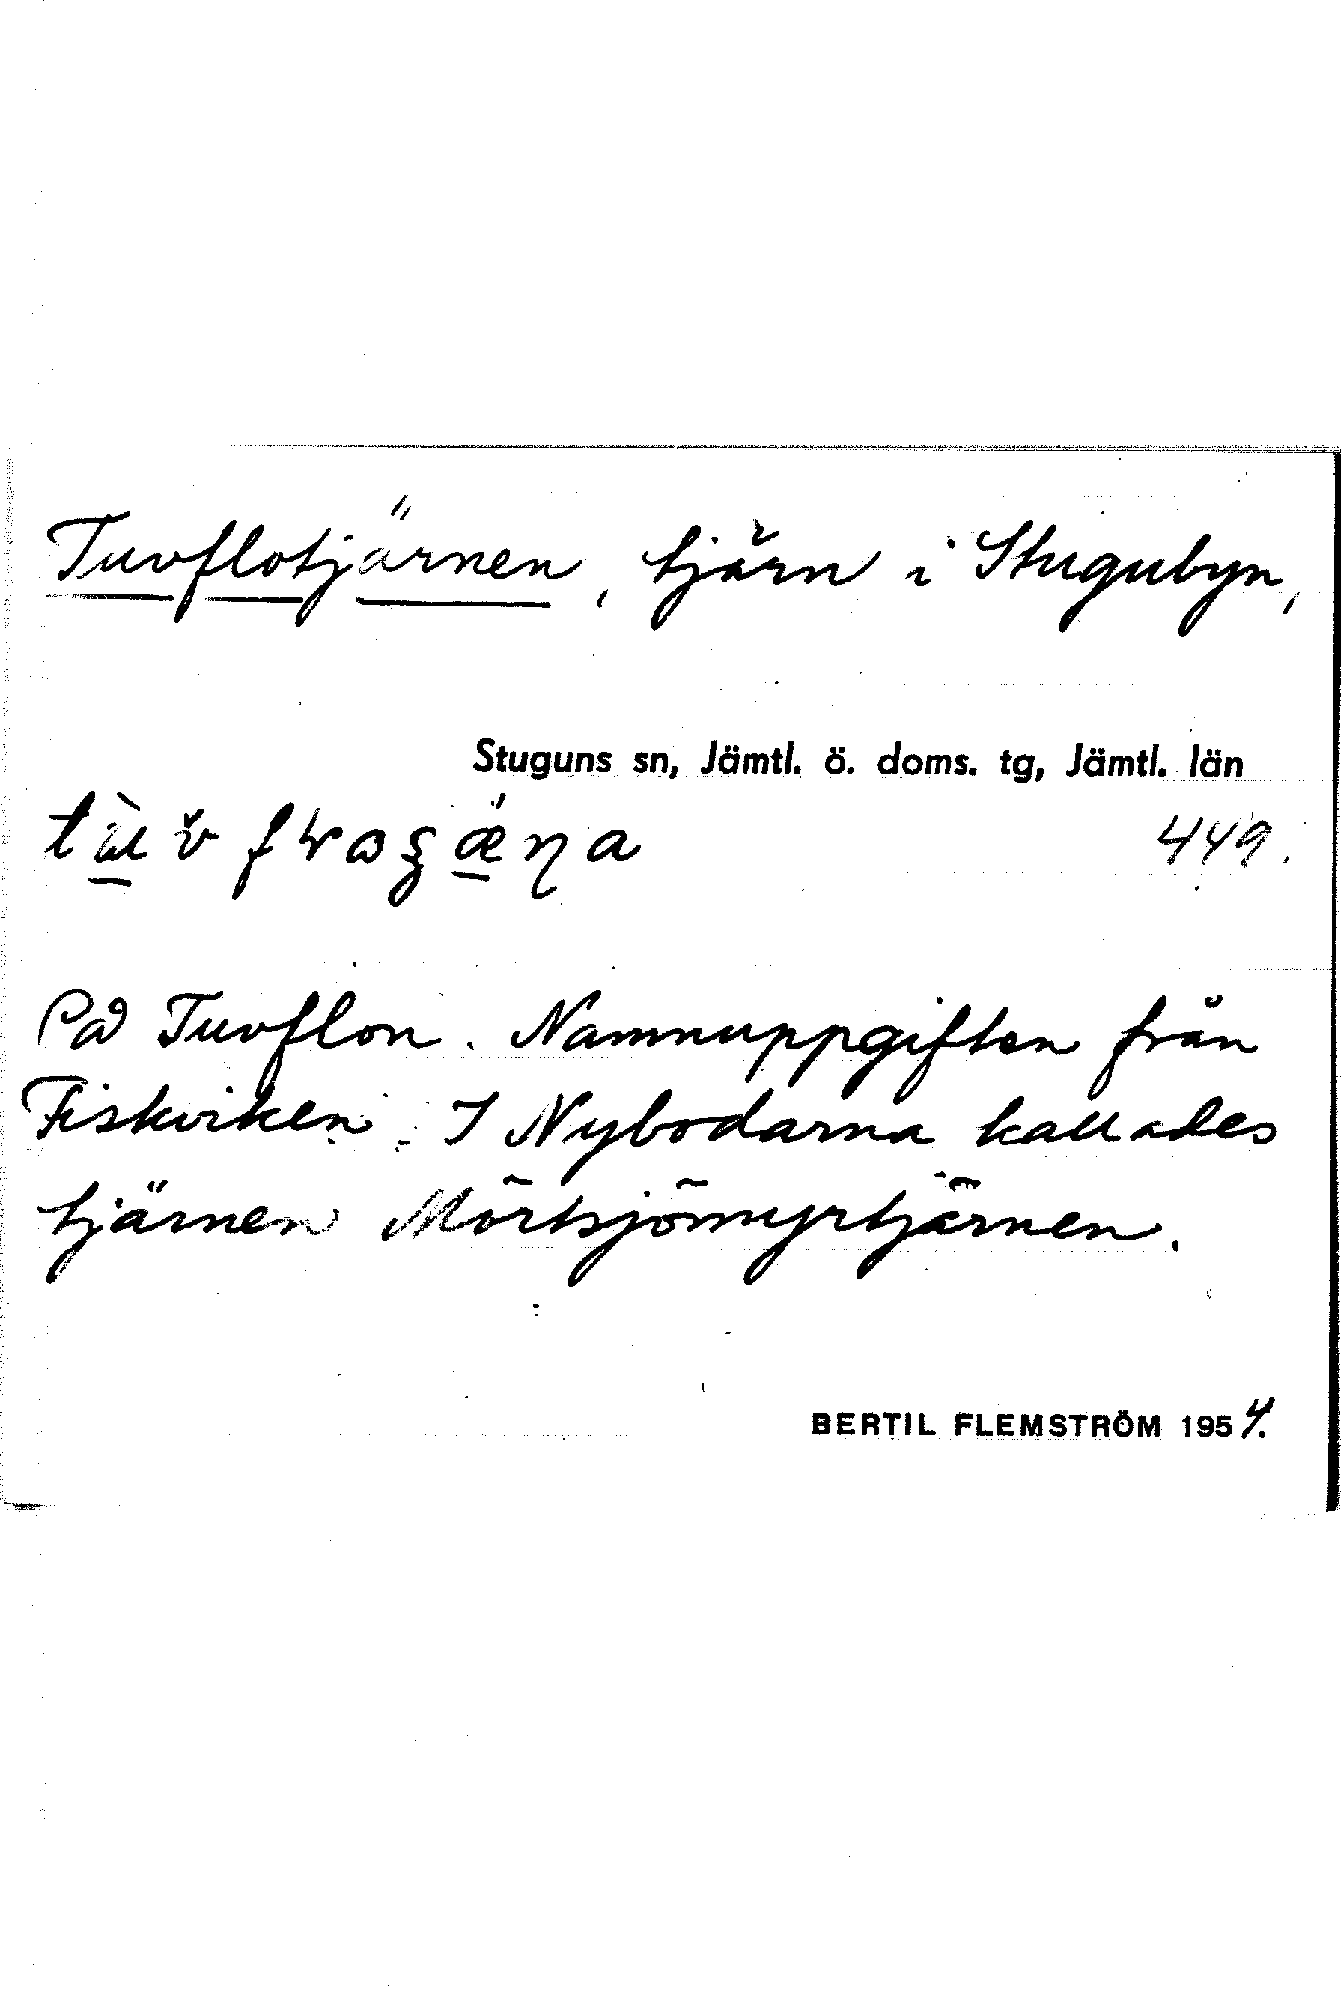 Tuvflotjärnen, tjärn i Stugubyn,
Stuguns sn, Jämtl. ö. doms. tg, Jämtl. län
449.
På Tuvflon. Namnuppgiften från
Fiskviken. I Nybodarna kallades
tjärnen Mörtsjömyrtjärnen.
BERTIL FLEMSTRÖM 1954.